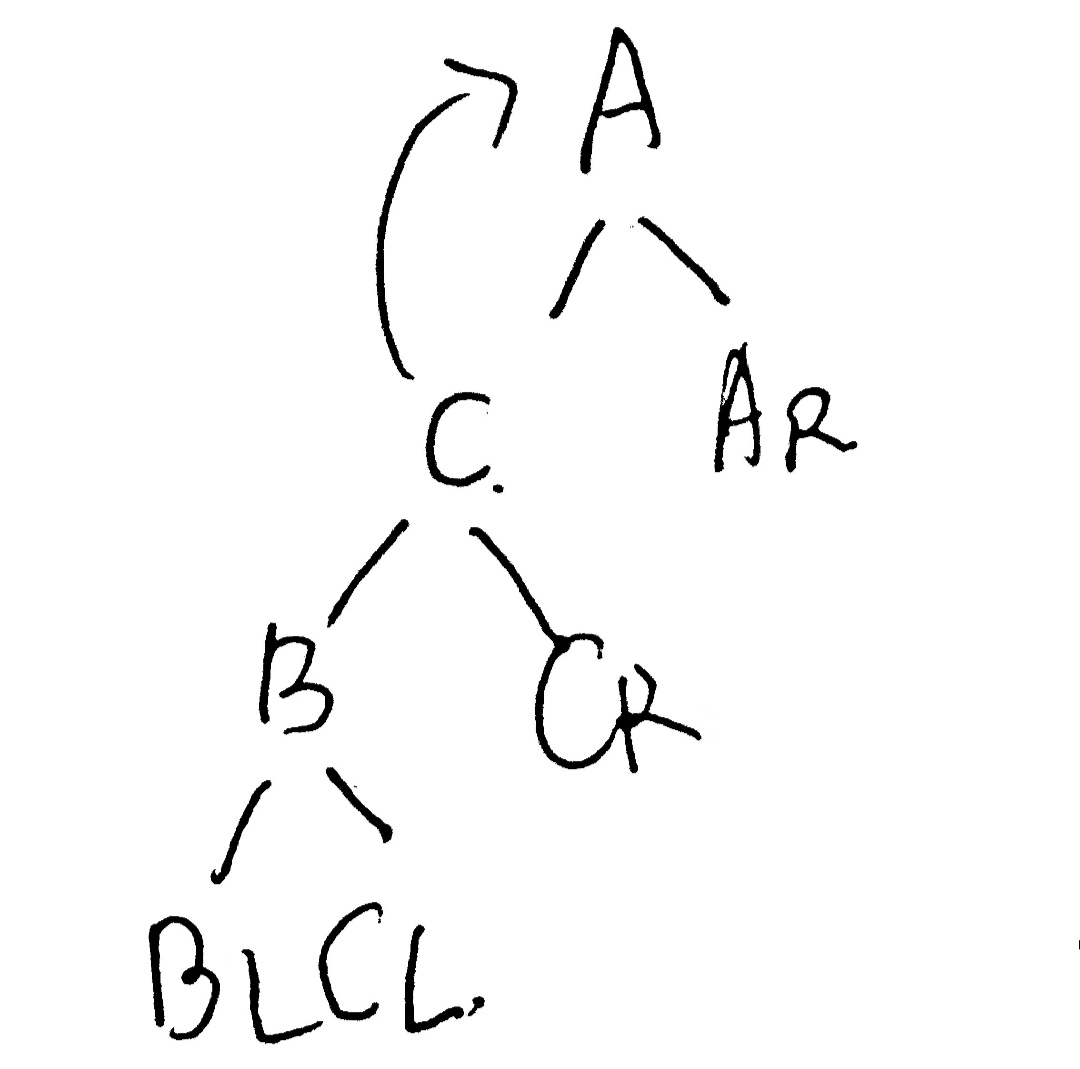 A
C. AR
B CR
BL CL.